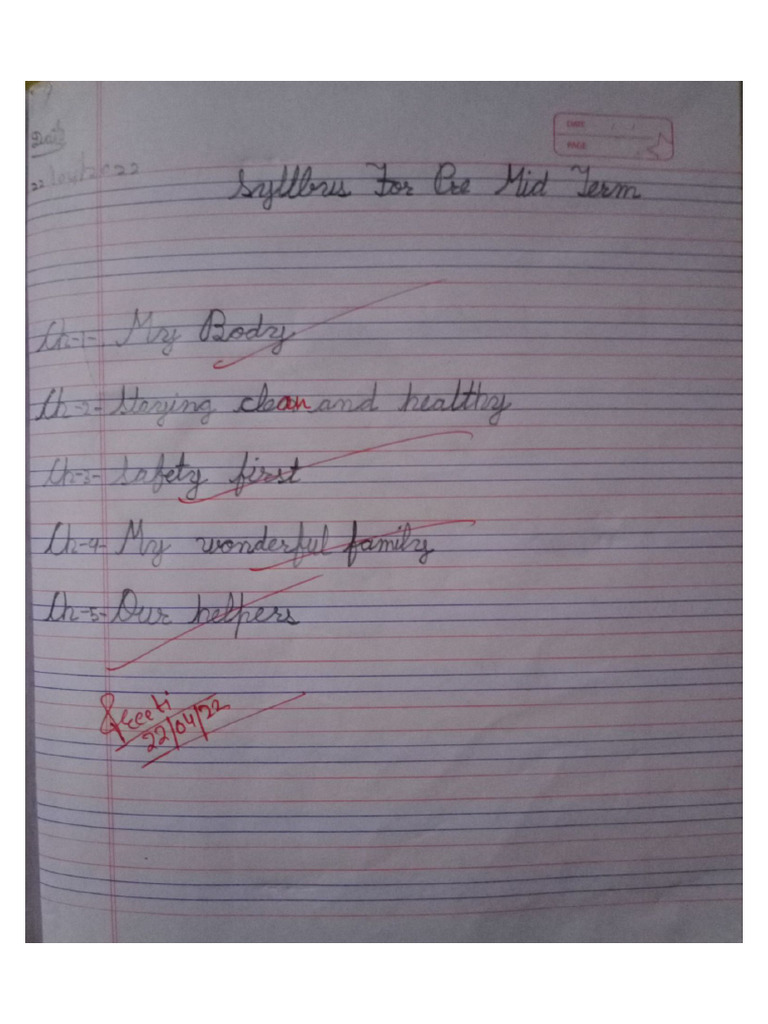 Date
DATE
PAGE
22/04/2022
Syllbus For Pre Mid Term
Ch-1- My Body
Ch-2- Staying clean and healthy
Ch-3- Safety first
Ch-4- My wonderful family
Ch-5- Our helpers
Preeti
22/04/22